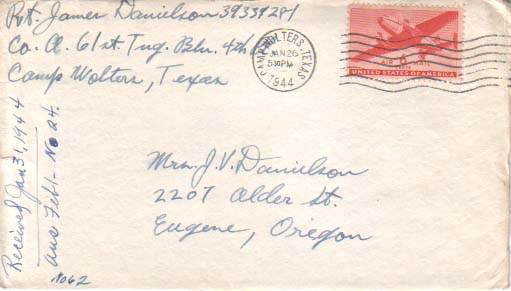 Pvt. James Danielson 39337281
Co. A. 61st. Tng. Bln. 4th
Camp Wolters, Texas
CAMP WOLTERS, TEXAS
JAN 26
5 30 PM
1944
AIR MAIL
UNITED STATES OF AMERICA
Mrs. J. V. Danielson
2207 Alder St.
Eugene, Oregon
Received Jan 31, 1944
ans Feb 1 - No 24.
No 62